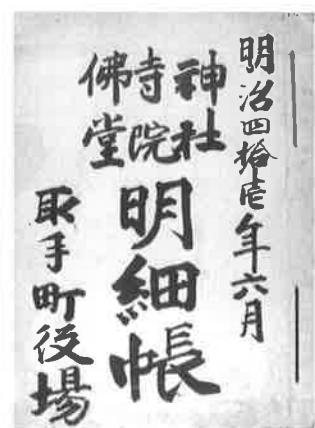 明治四拾壱年六月
神社
寺院
佛堂
明細帳
取手町役場